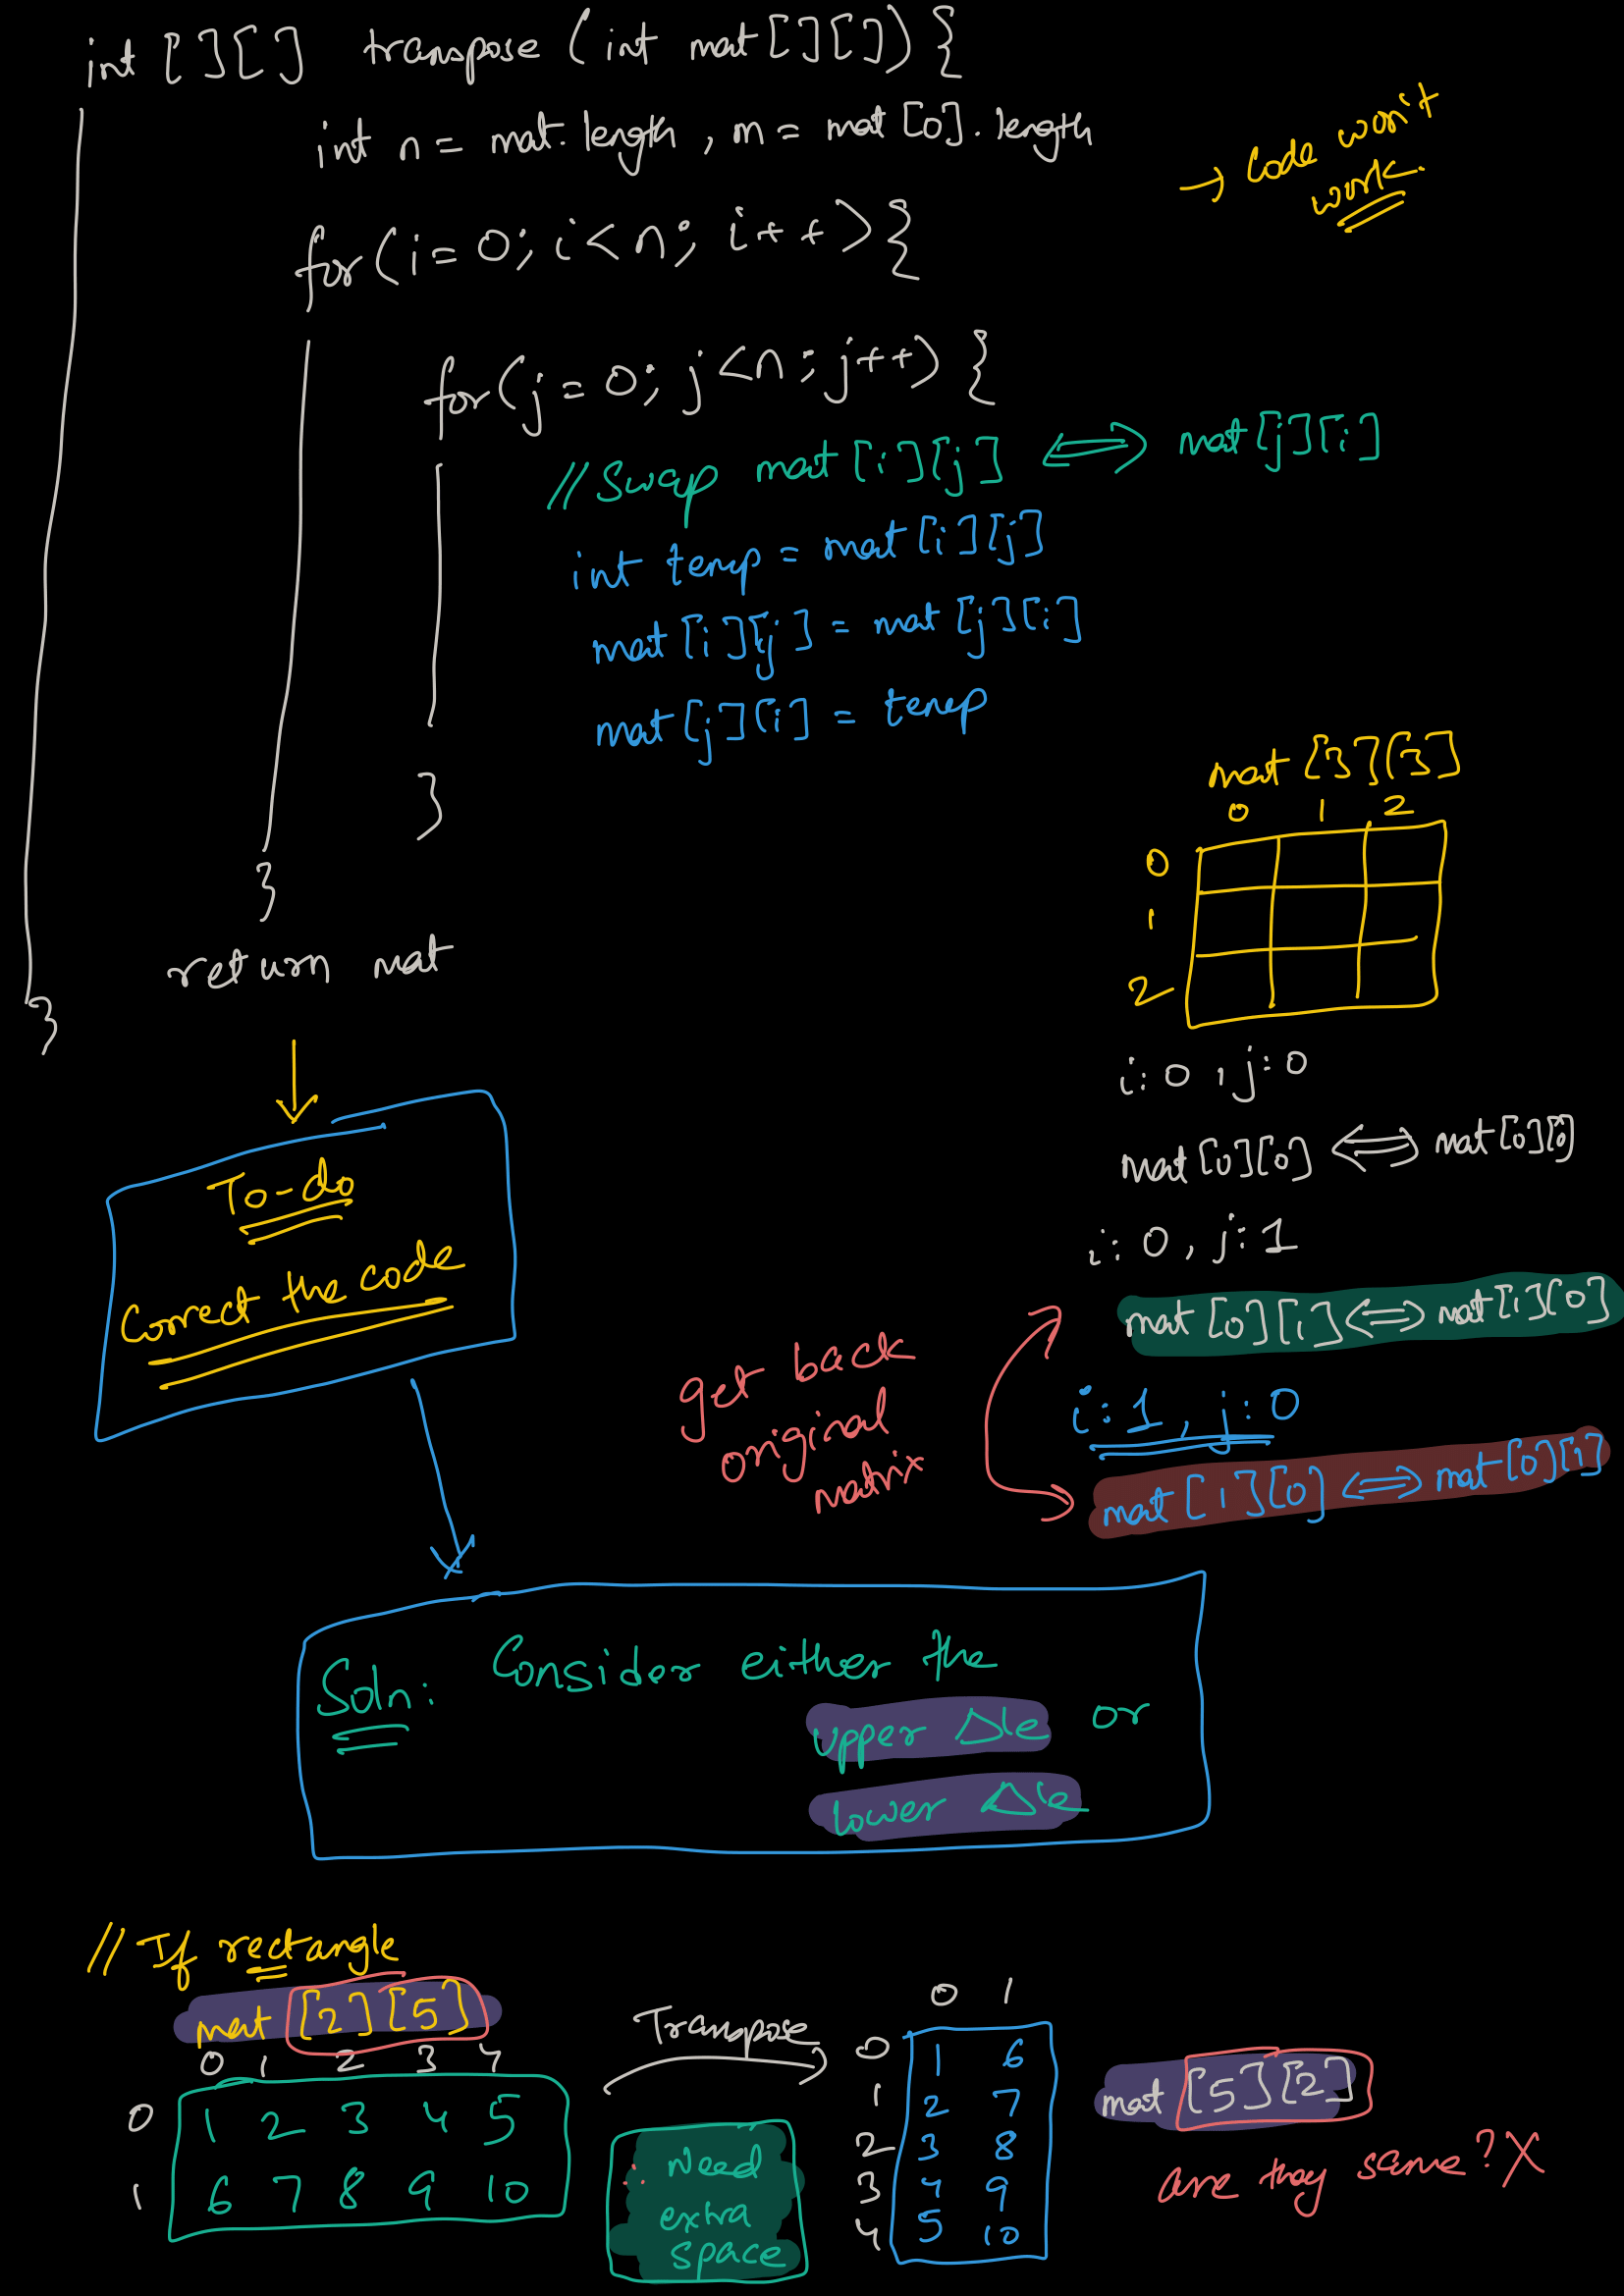 int [][] transpose (int mat[][]) {
int n = mat.length , m = mat[0].length
→ Code won't
work.
for(i=0; i<n; i++){
for(j=0; j<n; j++) {
//Swap mat[i][j] ⟺ mat[j][i]
int temp = mat[i][j]
mat[i][j] = mat[j][i]
mat[j][i] = temp
}
}
return mat
}
mat [3][3]
0 1 2
0
1
2
i:0 , j:0
mat[0][0] ⟺ mat[0][0]
i:0, j:1
mat[0][1] ⟺ mat[1][0]
i:1, j:0
mat[1][0] ⟺ mat[0][1]
get back
original
matrix
To-do
Correct the code
Soln: Consider either the
upper Δle or
lower Δle
// If rectangle
mat [2][5]
0 1 2 3 4
0 1 2 3 4 5
1 6 7 8 9 10
Transpose
∵ Need
extra
space
0 1
0 1 6
1 2 7
2 3 8
3 4 9
4 5 10
mat [5][2]
are they same? X